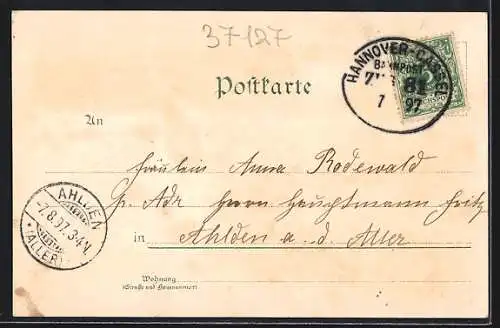 37127
HANNOVER-CASSEL
BAHNPOST
ZUG 81
7 97
Postkarte
An
Fräulein Anna Rodewald
Gr. Adr Herrn Hauptmann Fritz
in Ahlden a. d. Aller
AHLDEN
-7.8.97.3-4N.
*(ALLER)*
Wohnung
(Straße und Hausnummer)